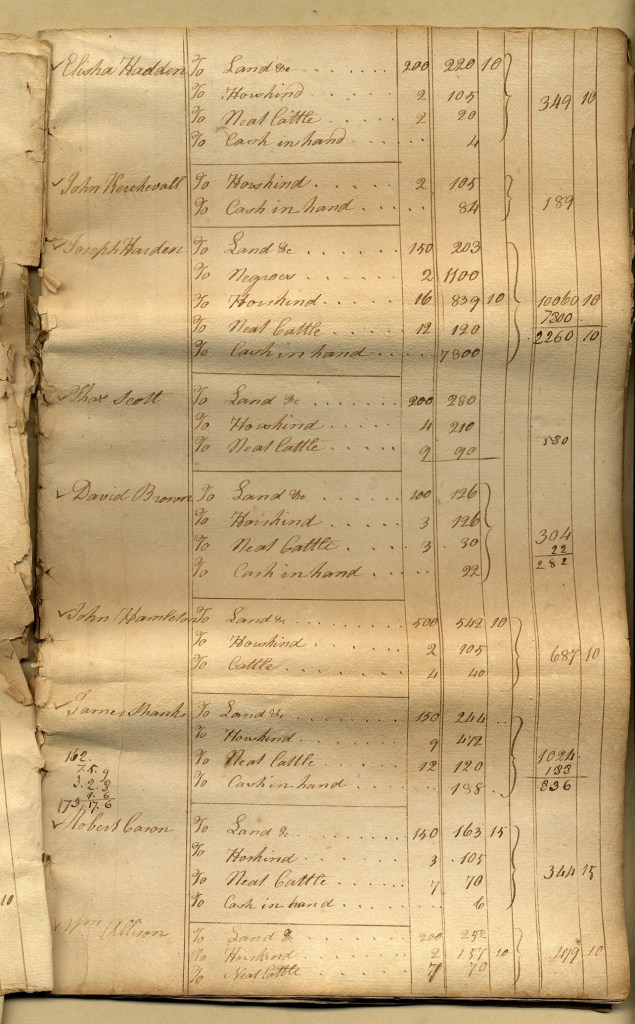 Elisha Hadden To Land &c 200 220 10
To Horskind 2 105
To Neat Cattle 2 20 349 10
To Cash in hand 4
John Kerchevall To Horskind 2 105
To Cash in hand 84 189
Joseph Harden To Land &c 150 203
To Negroes 2 1100
To Horskind 16 839 10 10060 10
7800
To Neat Cattle 12 120 2260 10
To Cash in hand 7800
Thos Scott To Land &c 200 280
To Horskind 4 210
To Neat Cattle 9 90 580
David Brown To Land &c 100 126
To Horskind 3 126
To Neat Cattle 3 30 304
22
To Cash in hand 22 282
John Hambleton To Land &c 500 542 10
To Horskind 2 105 687 10
To Cattle 4 40
James Shanks To Land &c 150 244
To Horskind 9 472
To Neat Cattle 12 120 1024
188
To Cash in hand 188 836
162
7.5.9
3.2.8
173,17.6
Robert To Land &c 150 163 15
To Horskind 3 105
To Neat Cattle 7 70 344 15
To Cash in hand 6
Wm Allison To Land & 200 252
To Horskind 2 157 10 479 10
To Neat Cattle 7 70
10